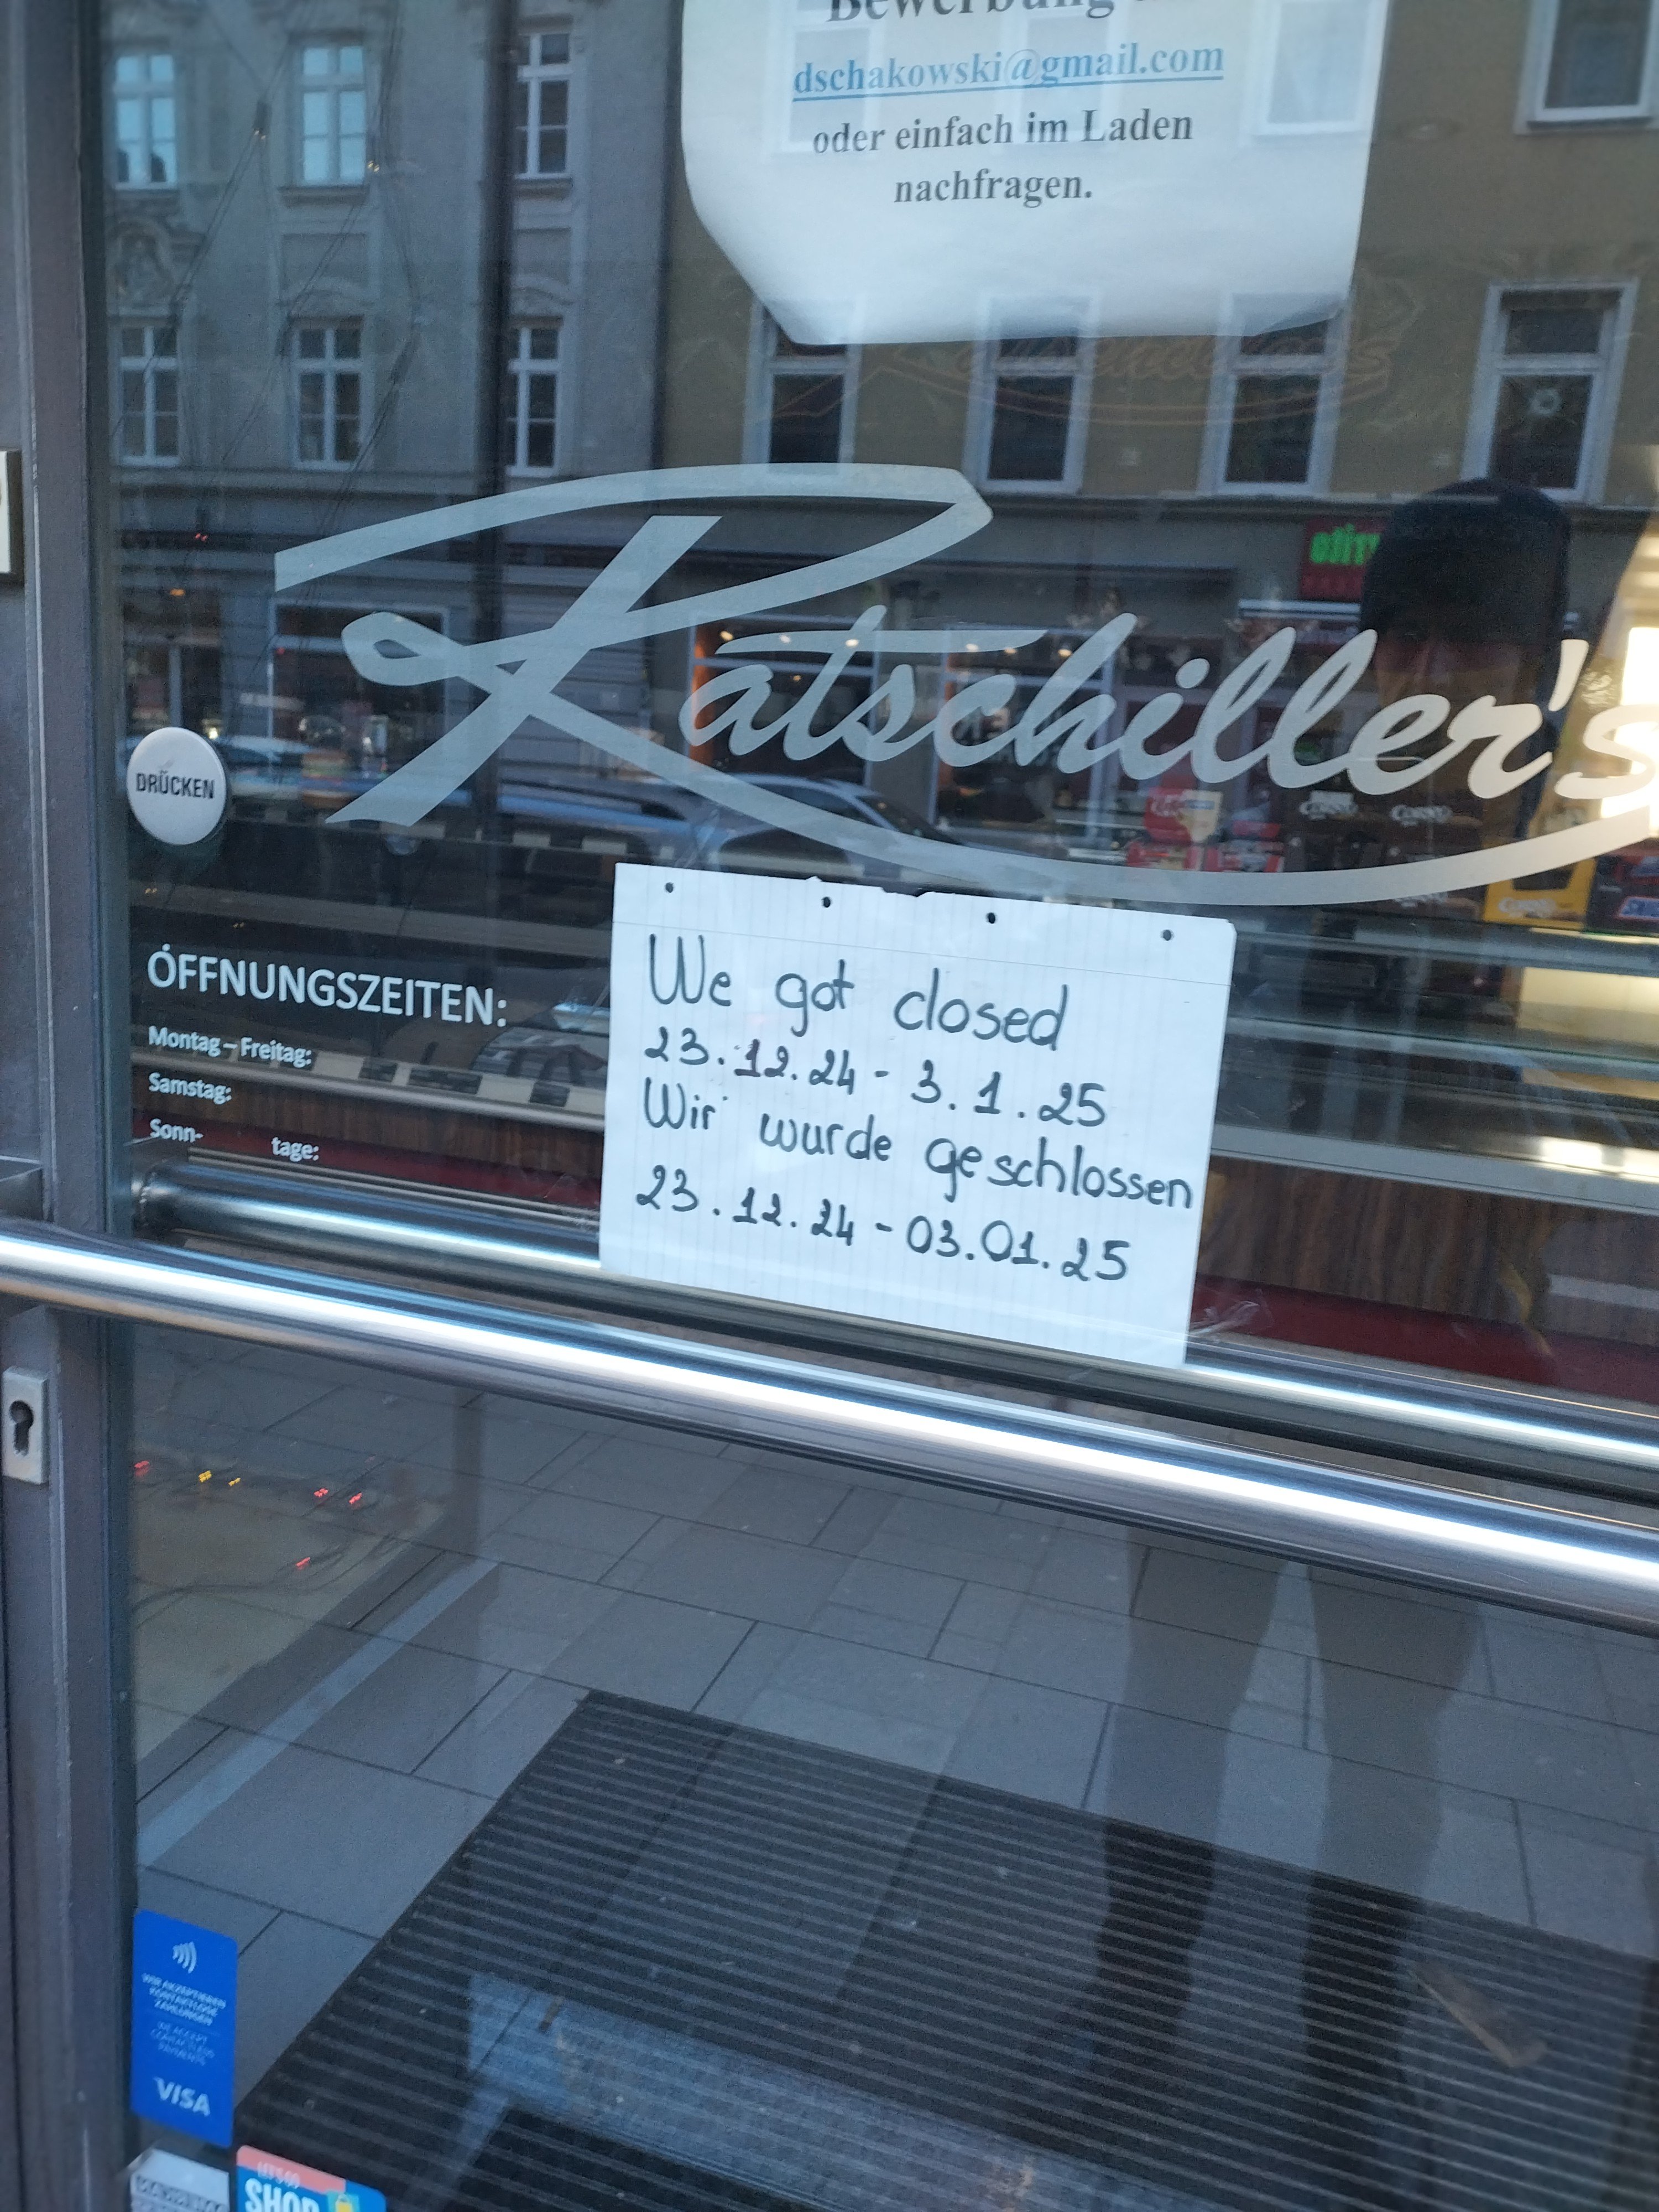 dschakowski@gmail.com
oder einfach im Laden
nachfragen.
Ratschiller's
DRÜCKEN
ÖFFNUNGSZEITEN:
Montag – Freitag:
Samstag:
Sonn- tage:
We got closed
23.12.24 - 3.1.25
Wir wurde geschlossen
23.12.24 - 03.01.25
WIR AKZEPTIEREN
KONTAKTLOSE
ZAHLUNGEN
WE ACCEPT
CONTACTLESS
PAYMENTS
VISA
LET'S GO
SHOP